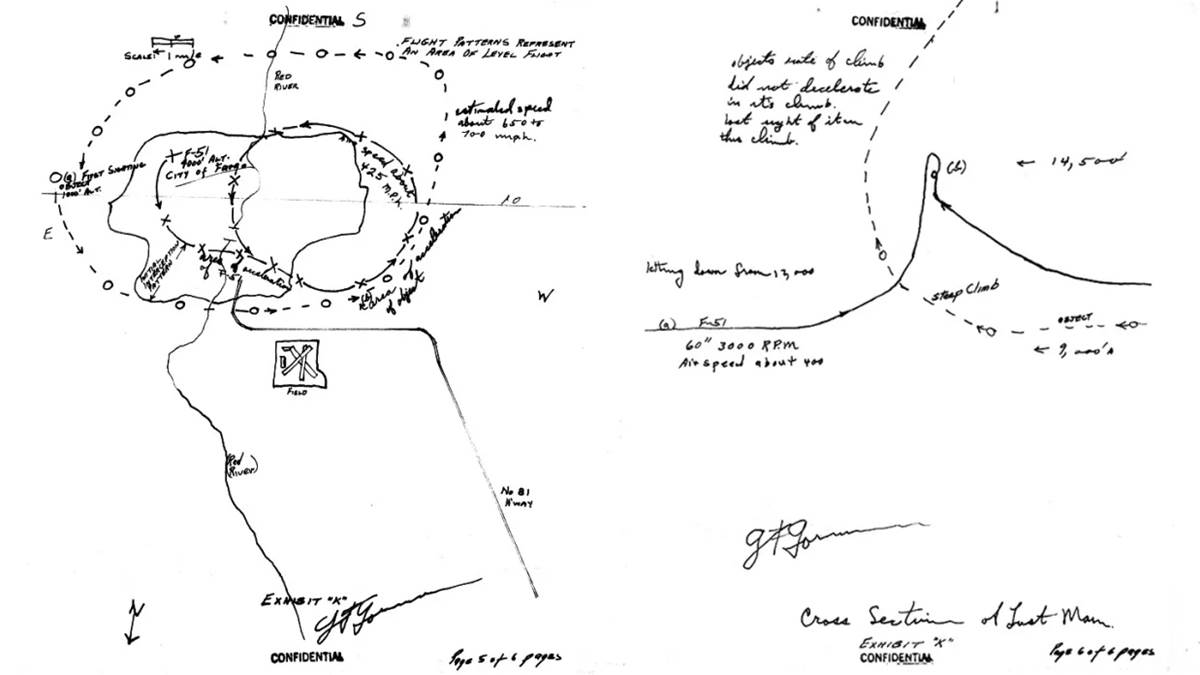 CONFIDENTIAL
S
SCALE: 1 mile
FLIGHT PATTERNS REPRESENT
AN AREA OF LEVEL FLIGHT
RED
RIVER
estimated speed
about 650 to
700 mph.
F-51
4000' ALT.
CITY OF Fargo
air speed about
425 M.P.h.
(a) FIRST SIGHTING
OBJECT
1000' ALT.
10
E
INITIAL
INTERCEPTION
PATTERN
area
of
F-51
acceleration
(b)
area of acceleration
of object
W
FIELD
(Red
RIVER)
No 81
H'WAY
N
EXHIBIT "K"
G F Gorman
CONFIDENTIAL
Page 5 of 6 pages
CONFIDENTIAL
objects rate of climb
did not decelerate
in its climb.
lost sight of it in
this climb.
(b)
← 14,500'
letting down from 13,000
steep climb
(a) F-51
OBJECT
60" 3000 R.P.M
Air speed about 400
G F Gorman
Cross Section of Last Man.
EXHIBIT "K"
CONFIDENTIAL
Page 6 of 6 pages